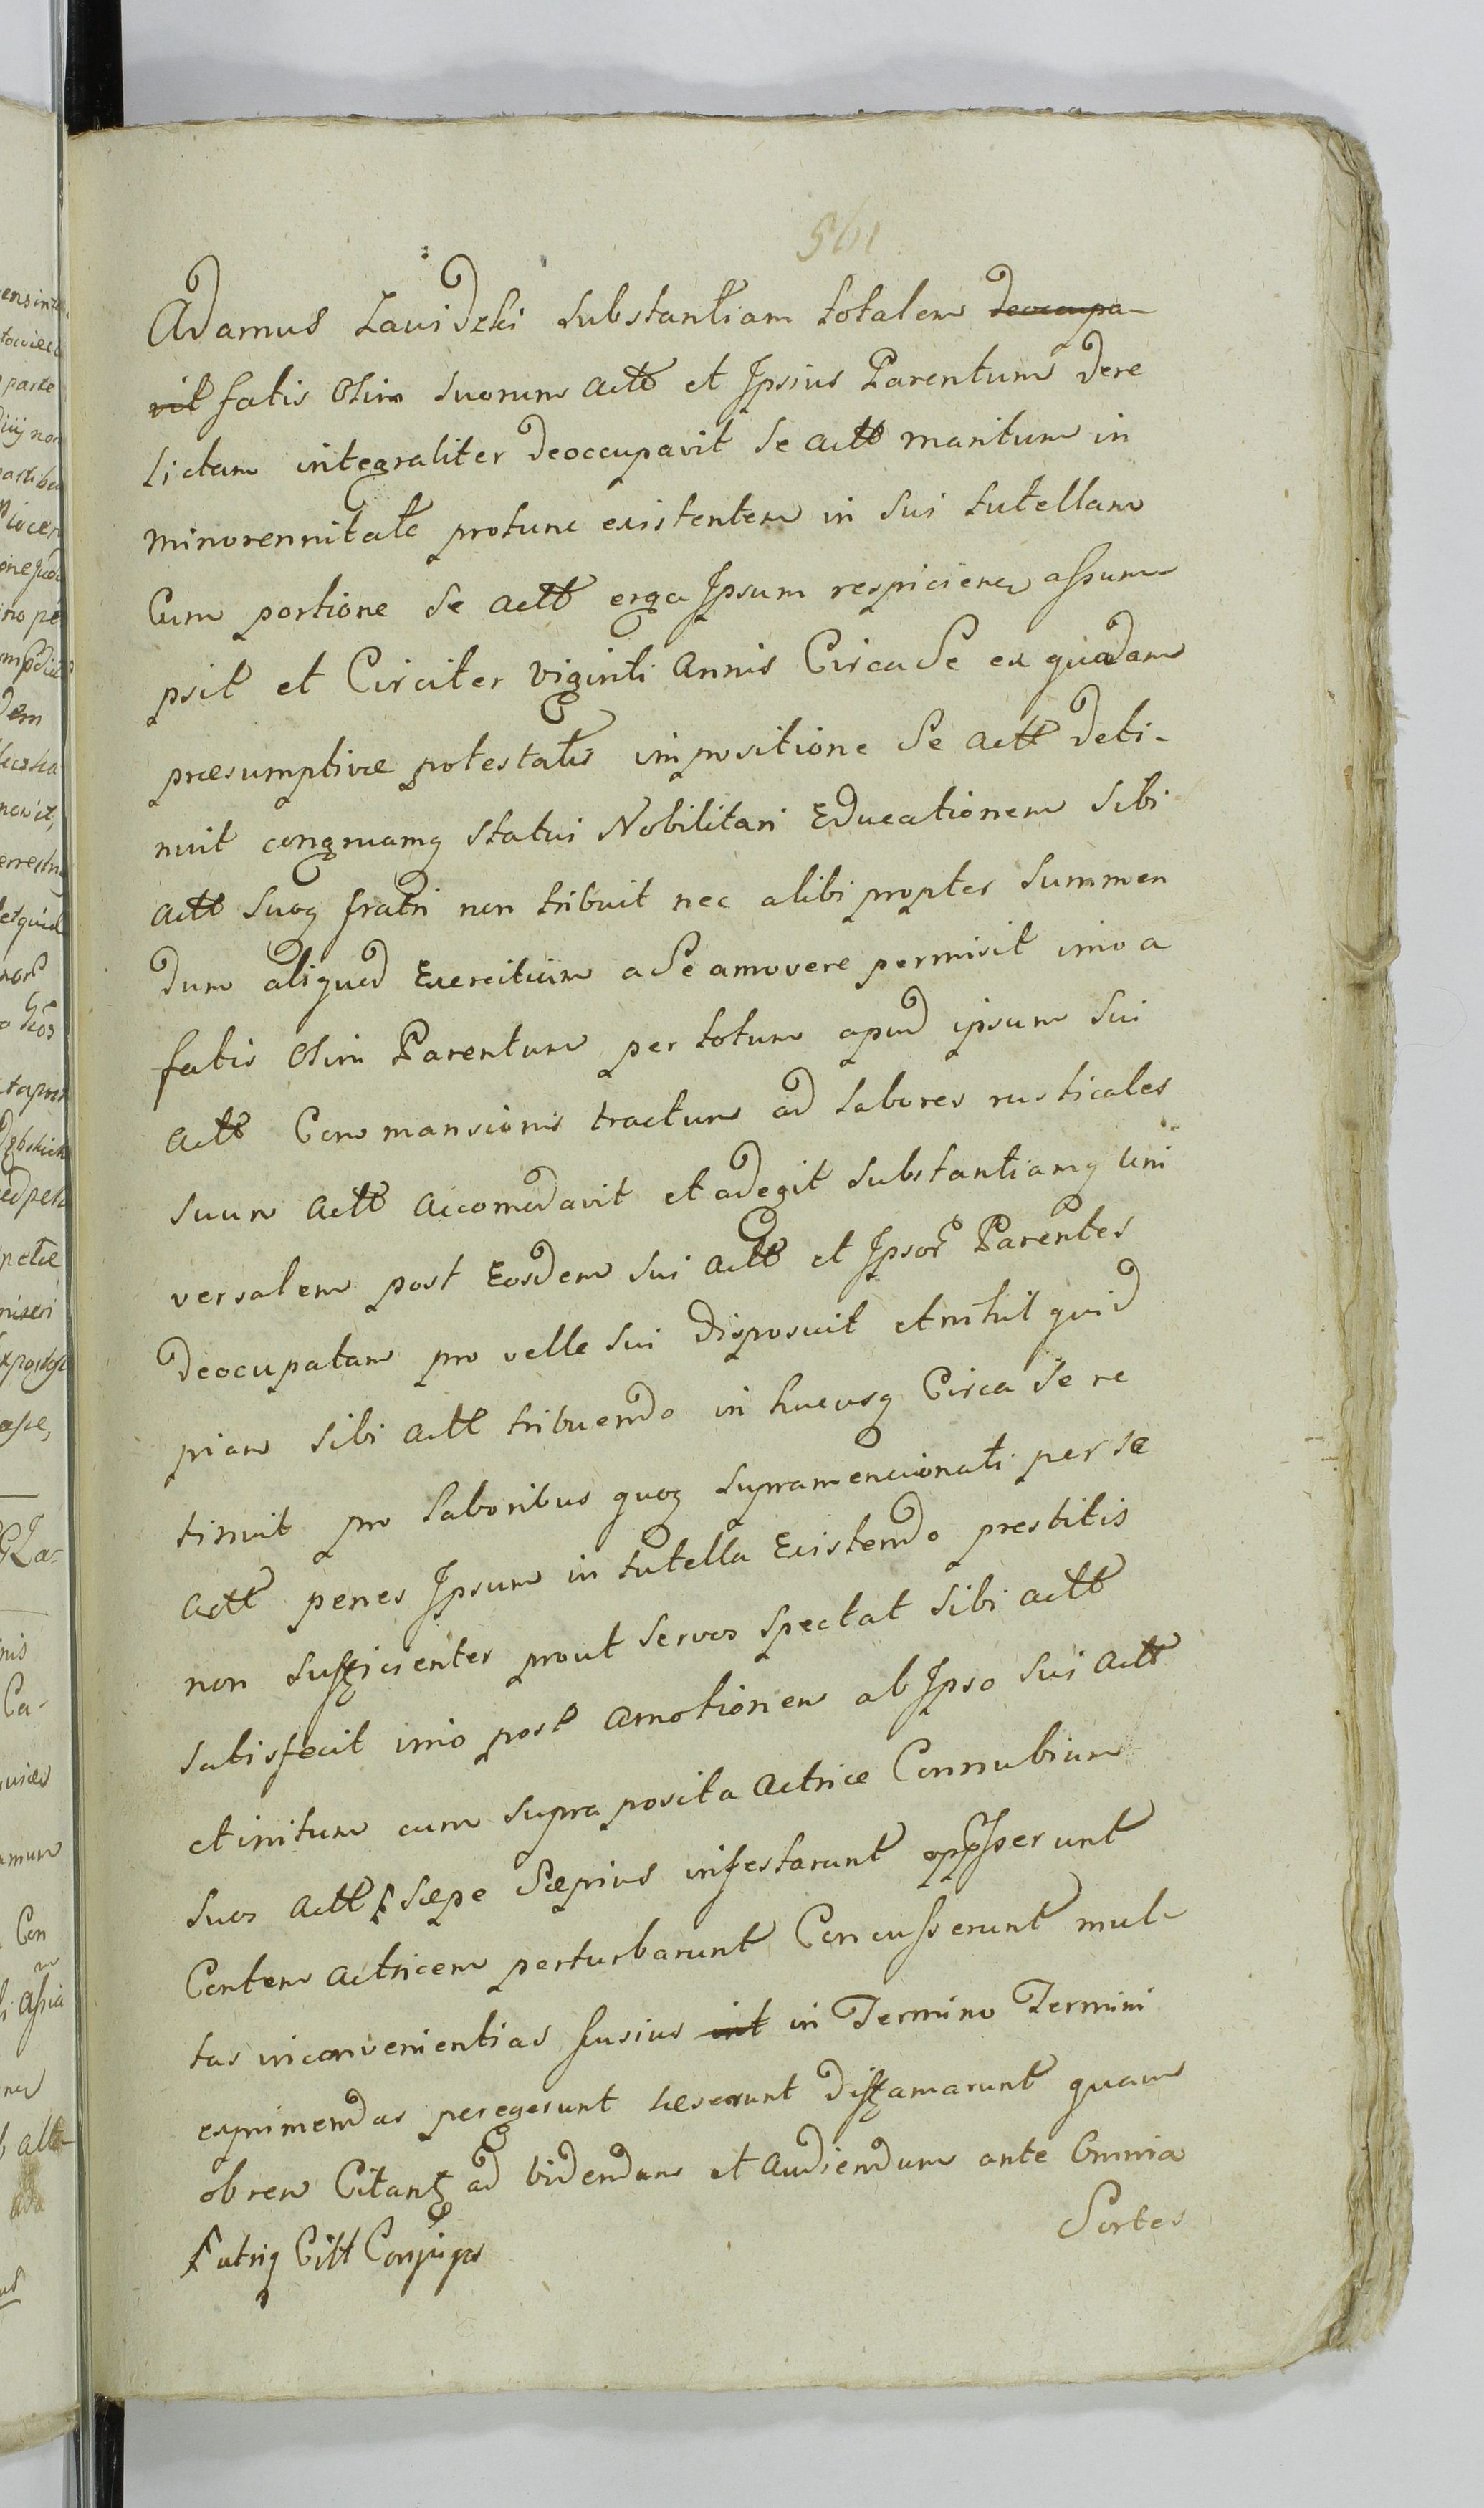 561
Adamus Zawidzki substantiam totalem deoccupa-
vit fatis Olim suorum actt et Ipsius Parentum dere
lictam integraliter deoccupavit se actt maritum in
minorennitate protunc existentem in sui tutellam
Cum portione se actt erga Ipsum respiciens assum-
psit et Circiter viginti annis Circa Se ex quadam
præsumptivæ potestatis impositione Se actt deti-
nuit congruamq statui Nobilitari Educationem sibi
actt suoq fratri non tribuit nec alibi propter summen
dum aliquod Exercitium a Se amovere permisit imo a
fatis Olim Parentum per totum apud ipsum sui
actt Commansionis tractum ad labores rusticales
suum actt accomodavit et adegit substantiamq uni
versalem post Eosdem sui actt et Ipsor Parentes
deocupatam pro velle sui disposuit et nihil quid
piam sibi actt tribuendo in hucusq Circa se re
tinuit pro laboribus quoq supramencionati per se
actt penes Ipsum in tutella Existendo prestitis
non sufficienter prout servos spectat sibi actt
satisfecit imo post amotionem ab Ipso sui actt
et initum cum supra posita actrice Connubium
suos actt sæpe Sæpius infestarunt oppresserunt
Contem actricem perturbarunt Concusserunt mul-
tas inconvenientias fusius int in Termino Termini
exprimendas peregerunt læserunt diffamarunt quam
ob rem Citant ad videndum et audiendum ante Omnia
Sortes
f utriq Citt Conjuges